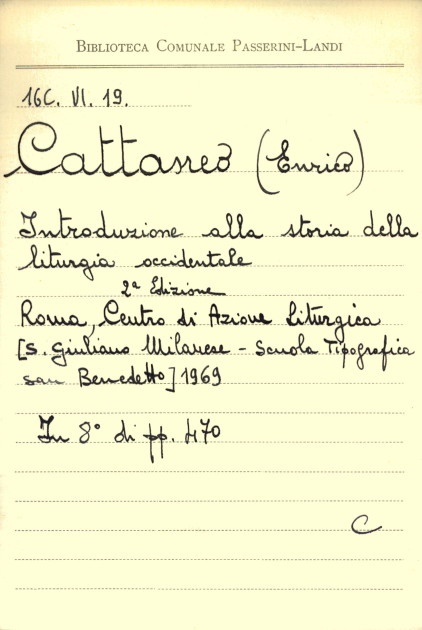 BIBLIOTECA COMUNALE PASSERINI-LANDI
16C. VI. 19.
Cattaneo (Enrico)
Introduzione alla storia della
liturgia occidentale
2ª Edizione
Roma, Centro di Azione Liturgica
[S. Giuliano Milanese - Scuola Tipografica
San Benedetto] 1969
In 8° di pp. 470
C